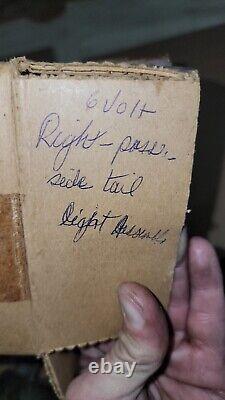 6 Volt
Right - pass.
side tail
Light Assembly
ebay